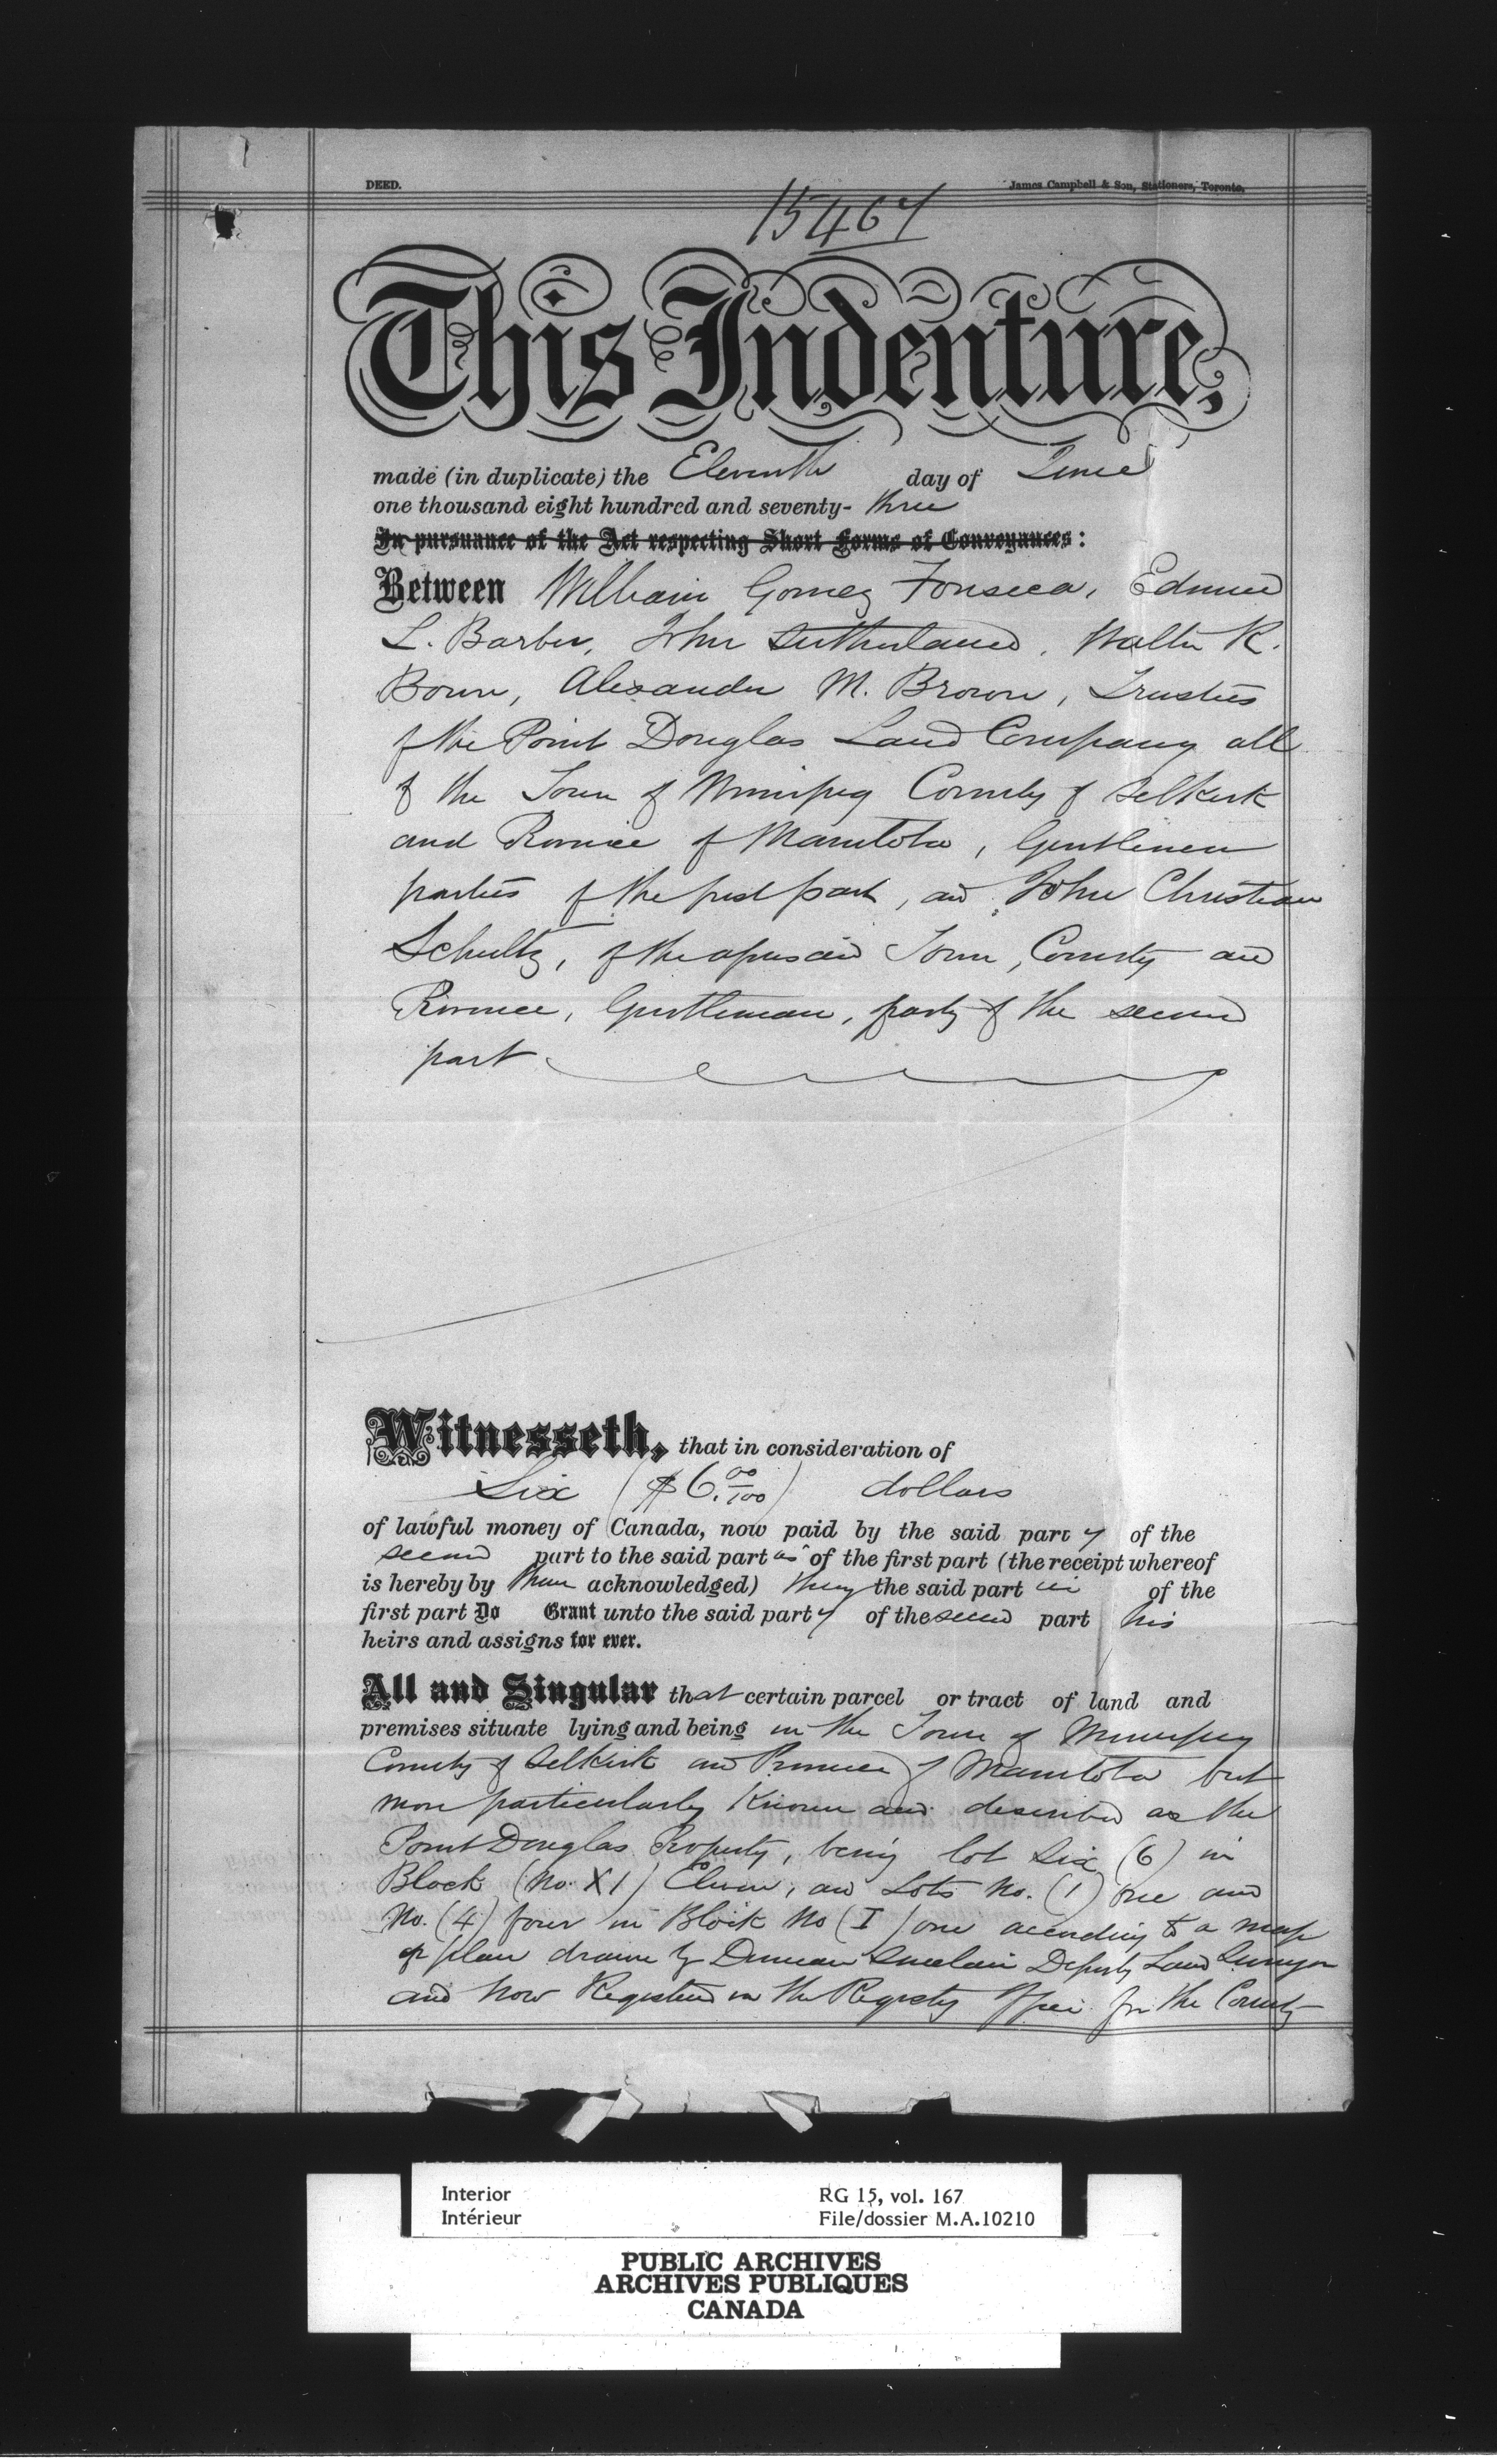 DEED.
James Campbell & Son, Stationers, Toronto.
15467
This Indenture,
made (in duplicate) the Eleventh day of June
one thousand eight hundred and seventy- three
In pursuance of the Act respecting Short Forms of Conveyances:
Between William Gomez Fonseca, Edmund
L. Barber, John Sutherland, Walter R.
Bown, Alexander M. Brown, Trustees
of the Point Douglas Land Company all
of the Town of Winnipeg County of Selkirk
and Province of Manitoba, Gentlemen
parties of the first part, and John Christian
Schultz, of the aforesaid Town, County and
Province, Gentleman, party of the second
part
Witnesseth, that in consideration of
Six ($6. 00/100) dollars
of lawful money of Canada, now paid by the said party of the
second part to the said part of the first part (the receipt whereof
is hereby by them acknowledged) they the said part of the
first part Do Grant unto the said party of the second part his
heirs and assigns for ever.
All and Singular that certain parcel or tract of land and
premises situate lying and being in the Town of Winnipeg
County of Selkirk and Province of Manitoba but
more particularly Known and described as the
Point Douglas Property, being lot Six (6) in
Block (No. XI) Eleven, and Lots No. (1) one and
No. (4) four in Block No (I) one according to a map
or plan drawn by Duncan Sinclair Deputy Land Surveyor
and now Registered in the Registry Office for the County
Interior
Intérieur
RG 15, vol. 167
File/dossier M.A.10210
PUBLIC ARCHIVES
ARCHIVES PUBLIQUES
CANADA